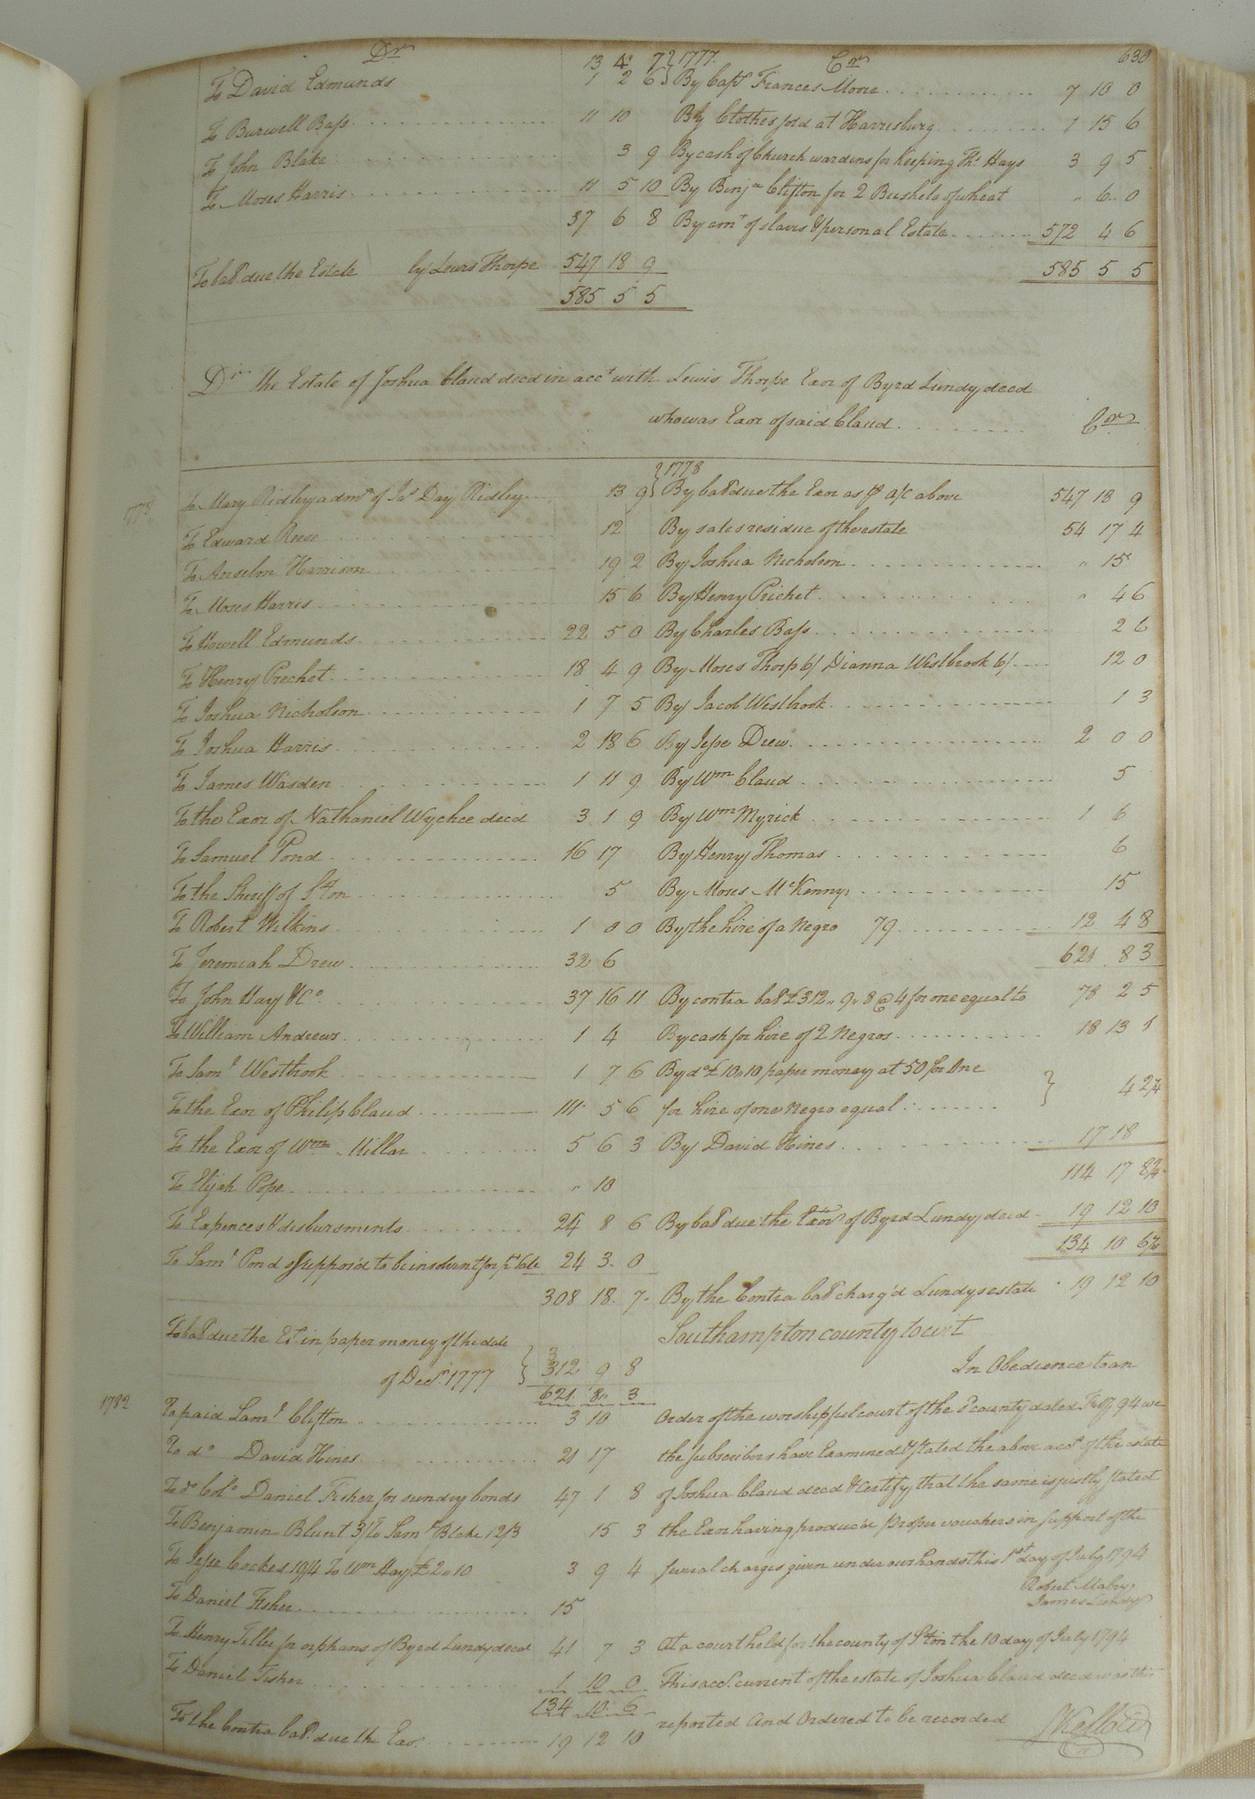 Dr 13 4 7 1777 Cr 630
To David Edmunds 1 2 6 By Capt Frances Moore 7 10 0
To Burwell Bass 11 10 By Clothes sold at Harrisburg 1 15 6
To John Blake 3 9 By cash of Church wardens for keeping Ths Hays 3 9 5
To Moses Harris 11 5 10 By Benja Clifton for 2 Bushels of wheat " 6 0
37 6 8 By amt of slaves & personal Estate 572 4 6
To bal due the Estate by Lewis Thorpe 547 18 9 585 5 5
585 5 5
Dr the Estate of Joshua Claud decd in acct with Lewis Thorpe Exor of Byrd Lundy decd
who was Exor of said Claud Cr
1778
1778 To Mary Ridley admx of Jas Day Ridley 13 9 By bal due the Exor as pr a/c above 547 18 9
To Edward Reese 12 By sales residue of the estate 54 17 4
To Anselm Harrison 19 2 By Joshua Nicholson " 15
To Moses Harris 15 6 By Henry Prichet " 4 6
To Howell Edmunds 22 5 0 By Charles Bass 2 6
To Henry Prechet 18 4 9 By Moses Thorp 6/ Dianna Westbrook 6/ 12 0
To Joshua Nicholson 1 7 5 By Jacob Westbrook 1 3
To Joshua Harris 2 18 6 By Jesse Drew 2 0 0
To James Wasden 1 11 9 By Wm Claud 5
To the Exor of Nathaniel Wychee decd 3 1 9 By Wm Myrick 1 6
To Samuel Pond 16 17 By Henry Thomas 6
To the Sheriff of Ston 5 By Moses McKenny 15
To Robert Wilkins 1 0 0 By the hire of a Negro 79 12 4 8
To Jeremiah Drew 32 6 621 8 3
To John Hay & Co 37 16 11 By contra bal £312 " 9 " 8 @ 4 for one equal to 78 2 5
To William Andrews 1 4 By cash for hire of 2 Negros 18 13 1
To Saml Westbrook 1 7 6 By do £10.10 paper money at 50 for One
To the Exor of Philip Claud 111 5 6 for hire of one Negro equal 4 2¼
To the Exor of Wm Millar 5 6 3 By David Hines 17 18
To Elijah Pope " 10 114 17 8¼
To Expences & disbursments 24 8 6 By bal due the Exor of Byrd Lundy decd 19 12 10
To Saml Pond suppos'd to be insolvent for 24 3 0 134 10 6¼
308 18 7 By the Contra bal charg'd Lundys estate 19 12 10
To bal due the Et in paper money of the date Southampton county to wit
of Decr 1777 312 9 8 In Obedience to an
621 8 3
1782 To paid Saml Clifton 3 10 Order of the worshipful court of the sd county dated 94 we
To do David Hines 21 17 the subscribers have Examined & stated the above acct of the estate
To do Colo Daniel Fisher for sundry bonds 47 1 8 of Joshua Claud decd & certify that the same is justly stated
To Benjamin Blunt 3/ To Saml Blake 12/3 15 3 the Exor having produc'd proper vouchers in support of the
To Jesse Cockes 19/4 To Wm Hay £2 " 10 3 9 4 several charges given under our hands this 1st day of July 1794
Robert Mabry
To Daniel Fisher 15 James Lundy
To Henry Tiller for orphans of Byrd Lundy decd 41 7 3 At a court held for the county of Ston the 10 day of July 1794
To Daniel Fisher 1 10 0 This acct current of the estate of Joshua Claud decd was this
134 10 6
To the Contra bal. due the Exor 19 12 10 reported and Ordered to be recorded